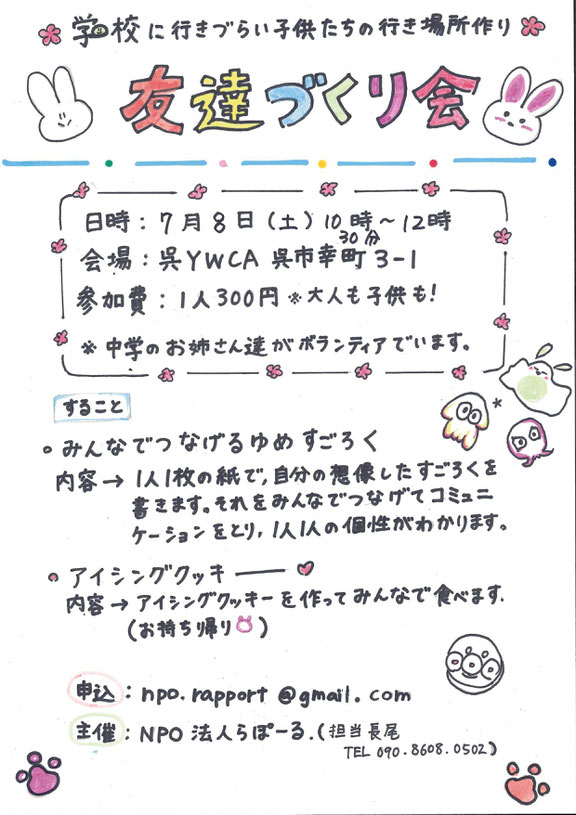 学校に行きづらい子供たちの行き場所作り
友達づくり会
日時：7月8日（土）10時30分～12時
会場：呉YWCA 呉市幸町3-1
参加費：1人300円 ※大人も子供も!
※中学のお姉さん達がボランティアでいます。
すること
みんなでつなげるゆめすごろく
内容→1人1枚の紙で,自分の想像したすごろくを
書きます。それをみんなでつなげてコミュニ
ケーションをとり,1人1人の個性がわかります。
アイシングクッキー
内容→アイシングクッキーを作ってみんなで食べます.
(お持ち帰り)
申込：npo.rapport@gmail.com
主催：NPO法人らぽーる.(担当長尾
TEL 090.8608.0502)